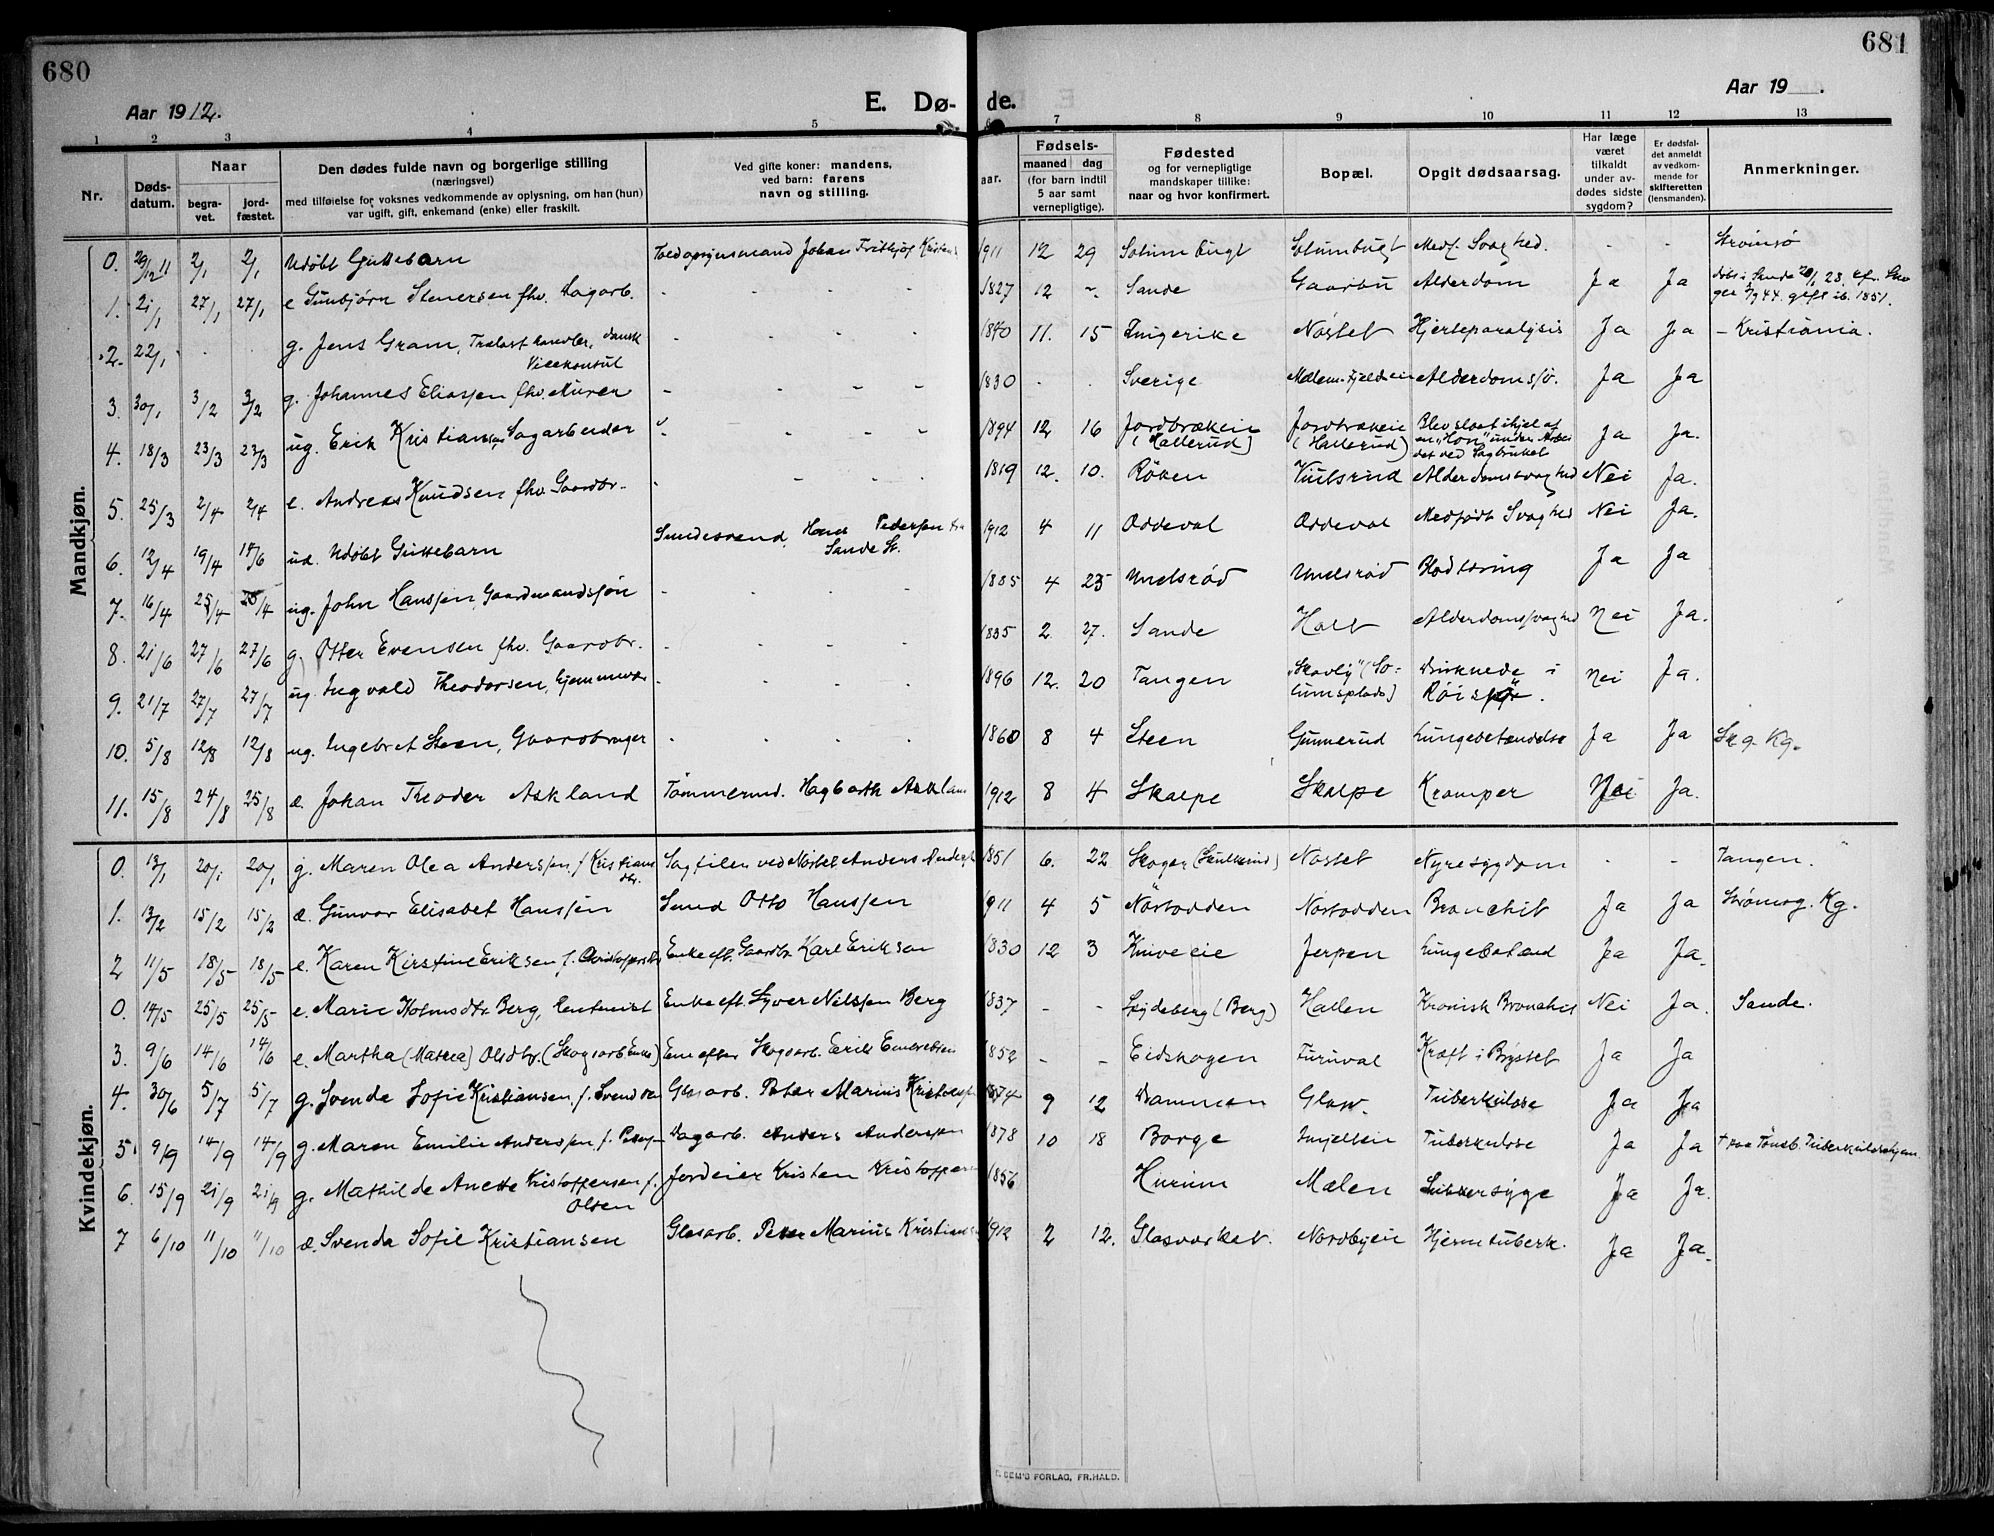 680
681
Aar 1912.
E. Dø-
de.
Aar 19 .
1 2 3 4 5 7 8 9 10 11 12 13
Nr.
Døds-
datum.
Naar
begra-
vet.
jord-
fæstet.
Den dødes fulde navn og borgerlige stilling
(næringsvei)
med tilføielse for voksnes vedkommende av oplysning, om han (hun)
var ugift, gift, enkemand (enke) eller fraskilt.
Ved gifte koner: mandens,
ved barn: farens
navn og stilling.
aar.
Fødsels-
maaned dag
(for barn indtil
5 aar samt
vernepligtige).
Fødested
og for vernepligtige
mandskaper tillike:
naar og hvor konfirmert.
Bopæl.
Opgit dødsaarsag.
Har læge
været
tilkaldt
under av-
dødes sidste
sygdom?
Er dødsfal-
det anmeldt
av vedkom-
mende for
skifteretten
(lensmanden).
Anmerkninger.
Mandkjøn.
0. 29/12 11 2/1 2/1 Udøbt Guttebarn Johan Frithjof 1911 12 29 Solumbugt Medf. Svaghed. - - Strömsö
1. 21/1 27/1 27/1 e Gunbjörn Stenersen fhv. Dagarb. - - - - 1827 12 Sande Gaarbu Alderdom Ja Ja
ger 44. gift ib. 1851.
2. 22/1 g. Jens Gram, Trælasthandler, dansk
Vicekonsul
1840 11. 15 Ringerike Nöstet Hjerteparalysis Ja Ja - Kristiania.
3. 30/1 3/2 3/2 g. Johannes Eliassen fhv. Murer - - - - 1830 - - Sverige Alderdomssv. Ja Ja
4. 18/3 23/3 23/3 ug. Erik Kristiansen, Sagarbeider 1894 12 16 Jordbrækeie
(Hallerud)
Jordbrækeie
(Hallerud)
Blev slaat ihjel af
en "Hon" under Arbei
det ved Sagbruket
Ja Ja.
5. 25/3 2/4 2/4 e. Andreas Knudsen fhv. Gaardbr. - - - - 1819 12. 10. Röken Alderdomssvaghed Nei Ja.
6. 12/4 19/4 14/6 ud. Udøbt Guttebarn Hans Pedersen fra
Sande S.
1912 4 11 Oddeval Oddeval Medfödt Svaghed Nei Ja.
7. 16/4 25/4 25/4 ug. John Hanssen, Gaardmandssön - - - - 1885 4 25 Undsröd Undsröd Blodtæring Ja Ja
8. 21/6 27/6 27/6 g. Otter Evensen fhv. Gaardbr. - - - - 1835 2 27. Sande Holt Alderdomssvaghed Nei Ja.
9. 21/7 27/7 27/7 ug. Ingvald Theodorsen, hjemmevær 1896 12. 20 Tangen "Skovly" (So-
lumsplads)
Druknede i
Nei Ja.
10. 5/8 12/8 12/8 ug. Ingebret Steen, Gaardbruger - - - - 1860 8 4 Steen Gunnerud Lungebetændelse Ja Ja Skg. Kg.
11. 15/8 24/8 25/8 æ. Johan Theodor Askland Tömmermd. Hagbarth Askland 1912 8 4 Skalpe Skalpe Kramper Nei Ja.
Kvindekjøn.
0. 13/1 20/1 20/1 g. Maren Olea Anderssen, f. Kristians
dtr.
Sagfiler ved Nöstet Anders Anders 1851 6. 22 Skoger Nöstet Nyresygdom - - Tangen.
1. 13/2 15/2 15/2 æ. Gunvor Elisabet Hanssen Smed Otto Hanssen 1911 4 5 Nörsodden Nörsodden Bronchit Ja Ja Strömsg. Kg.
2 11/5 18/5 18/5 e. Karen Kirstine Eriksen f. Enke eft. Gaardbr. Karl Eriksen 1830 12 3 Kniveeie Jerpen Lungebetænd Ja Ja.
0. 14/5 25/5 25/5 e. Marie Holmsdtr Berg, Rentenist Enke eft. Syver Nilssen Berg 1837 - - Spydeberg (Berg) Hallen Kronisk Bronchit Nei Ja. Sande.
3. 9/6 14/6 14/6 e. Martha (Mathea) Olsdtr. (Skogsarb Enke) Enke efter Skogsarb. Erik Embretsen 1852 - - Eidskogen Furuval Kræft i Brystet Ja Ja
4. 30/6 5/7 5/7 g. Svenda Sofie Kristiansen, f. Svendsen Glasarb. Peter Marius 1874 9 12 Drammen Glasv. Tuberkulose Ja Ja
5. 9/9 14/9 14/9 g. Maren Emilie Anderssen f. Dagarb. Anders Anderssen 1878 10 18 Borge Tuberkulose Ja Ja † paa Tønsb. Tuberkulosehjem
6. 15/9 21/9 21/9 g. Mathilde Anette Kristoffersen f.
Olsen
Jordeier Kristen Kristoffersen 1856 Hurum Mælen Sukkersyge Ja Ja.
7 6/10 11/10 11/10 æ. Svenda Sofie Kristiansen Glasarb. Peter Marius Kristiansen 1912 2 12. Glasværket. Nordbyeie Hjernetuberk. Ja Ja.
FORLAG, FR. HALD.